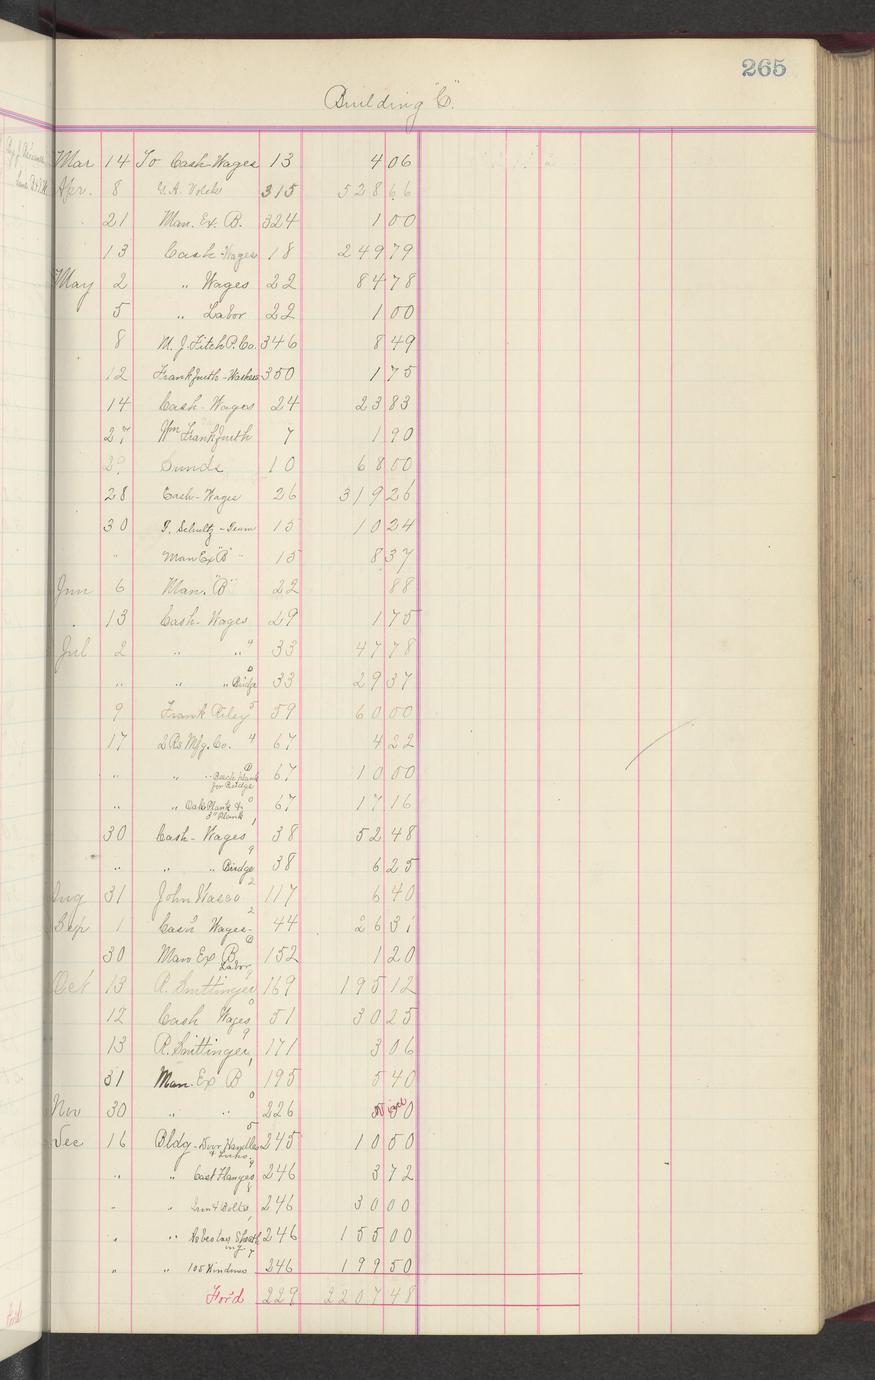 265
Building "C".
Mar 14 To Cash-Wages 13 4 06
Apr. 8 315 528 66
21 Man. Ex. B. 324 1 00
13 Cash-Wages 18 249 79
May 2 " Wages 22 84 78
5 " Labor 22 1 00
8 M. J. Fitch P. Co. 346 8 49
12 350 1 75
14 Cash-Wages 24 23 83
27 Wm Frankfurth 7 1 90
Sunds 10 68 00
28 Cash-Wages 26 319 26
30 Schultz - Team 15 10 24
" Man Ex "B" " 15 8 37
Jun 6 Man. "B" 22 88
. 13 Cash-Wages 29 1 75
Jul 2 " " 33 47 78
" " " Bridge 33 29 37
9 Frank Riley 59 60 00
17 2 Rs Mfg. Co. 67 4 22
" " " Plank for Bridge 67 10 00
" " Oak Plank & 3" Plank 67 17 16
30 Cash-Wages 38 52 48
" " " Bridge 38 6 25
Aug 31 John 117 6 40
Sep 1 Cash Wages- 44 26 31
30 Man Ex B Labor 152 1 20
Oct 13 R. Smittinger 169 195 12
12 Cash Wages 51 30 25
13 R. Smittinger 171 3 06
31 Man. Ex B 195 5 40
Nov 30 " " 226
Dec 16 Bldg-Door Handles & Locks. 245 10 50
" " Cast Flanges 246 3 72
" " Iron & Bolts 246 30 00
" " Asbestos Sheathing 246 155 00
" " 105 Windows 246 199 50
For'd 229 2207 48